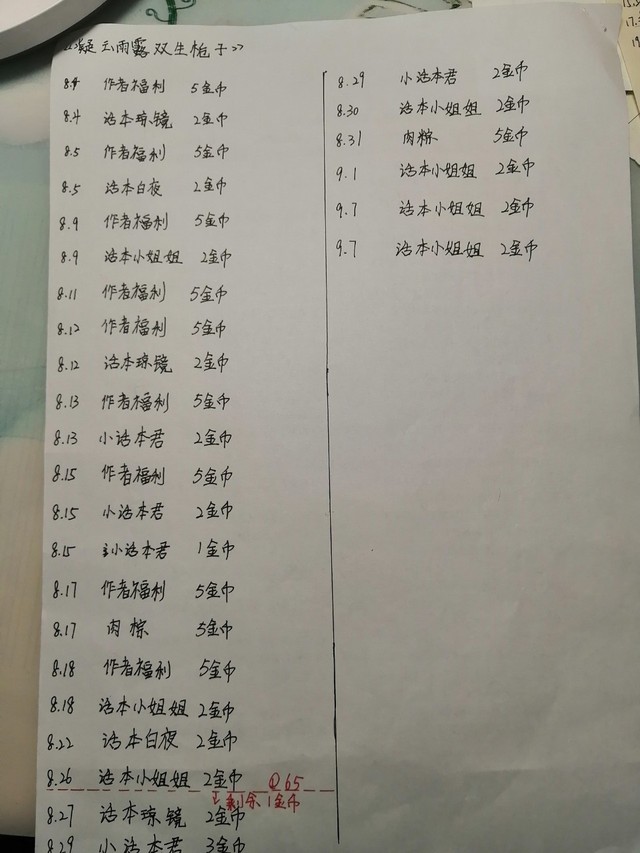 <<凝云雨露双生栀子>>
8.4 作者福利 5金币
8.4 话本琼镜 2金币
8.5 作者福利 5金币
8.5 话本白夜 2金币
8.9 作者福利 5金币
8.9 话本小姐姐 2金币
8.11 作者福利 5金币
8.12 作者福利 5金币
8.12 话本琼镜 2金币
8.13 作者福利 5金币
8.13 小话本君 2金币
8.15 作者福利 5金币
8.15 小话本君 2金币
8.15 小话本君 1金币
8.17 作者福利 5金币
8.17 肉粽 5金币
8.18 作者福利 5金币
8.18 话本小姐姐 2金币
8.22 话本白夜 2金币
8.26 话本小姐姐 2金币 ①65
↓剩余1金币
8.27 话本琼镜 2金币
8.29 小话本君 3金币
8.29 小话本君 2金币
8.30 话本小姐姐 2金币
8.31 肉粽 5金币
9.1 话本小姐姐 2金币
9.7 话本小姐姐 2金币
9.7 话本小姐姐 2金币